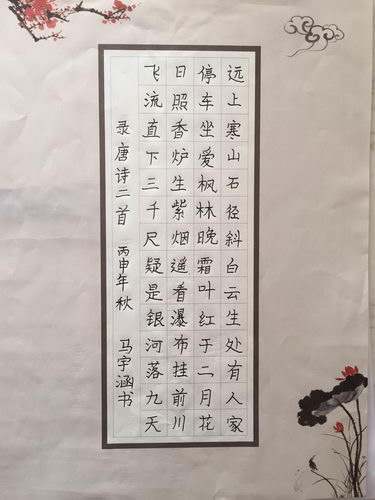 远上寒山石径斜白云生处有人家
停车坐爱枫林晚霜叶红于二月花
日照香炉生紫烟遥看瀑布挂前川
飞流直下三千尺疑是银河落九天
录唐诗二首 丙申年秋 马宇涵书